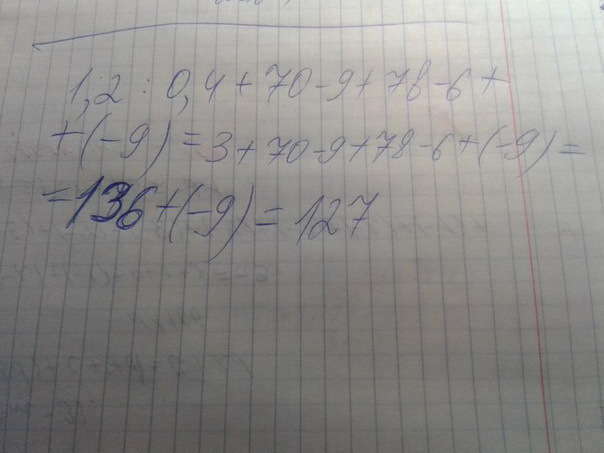 1,2 : 0,4 + 70 - 9 + 78 - 6 +
+ (-9) = 3 + 70 - 9 + 78 - 6 + (-9) =
= 136 + (-9) = 127